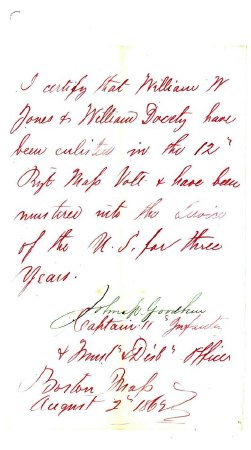 I certify that William W
Jones & William Docety have
been enlisted in the 12"
Rgt Mass Volt & have been
mustered into the Service
of the U. S. for three
Years.
Captain 11" Infantry
& Must" & Disb" Officer
Boston Mass
August 2" 1862